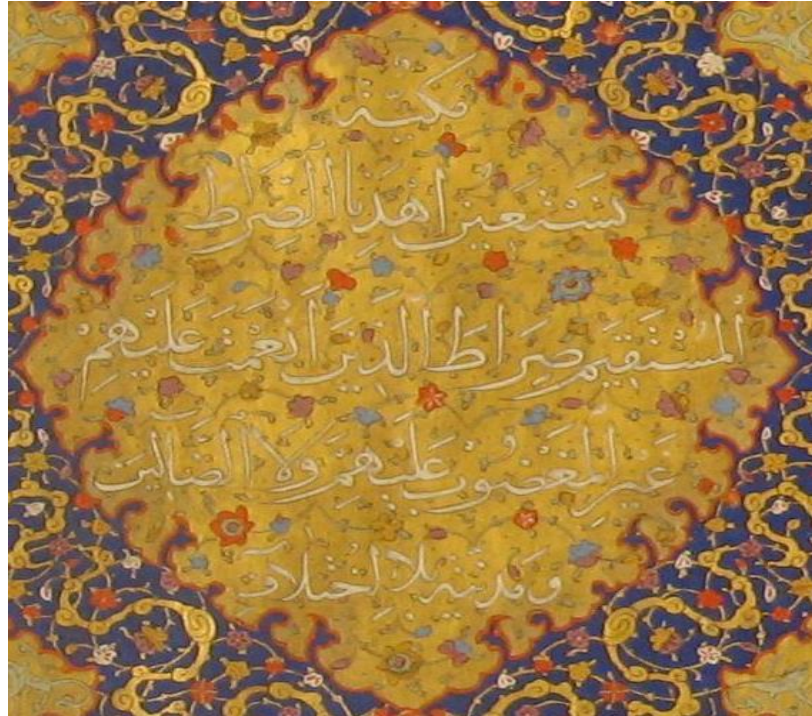 مكيّة
نَسْتَعِينُ اهْدِنَا الصِّرَاطَ
الْمُسْتَقِيمَ صِرَاطَ الَّذِينَ أَنْعَمْتَ عَلَيْهِمْ
غَيْرِ الْمَغْضُوبِ عَلَيْهِمْ وَلَا الضَّالِّينَ
ومدنيّة بلا اختلاف